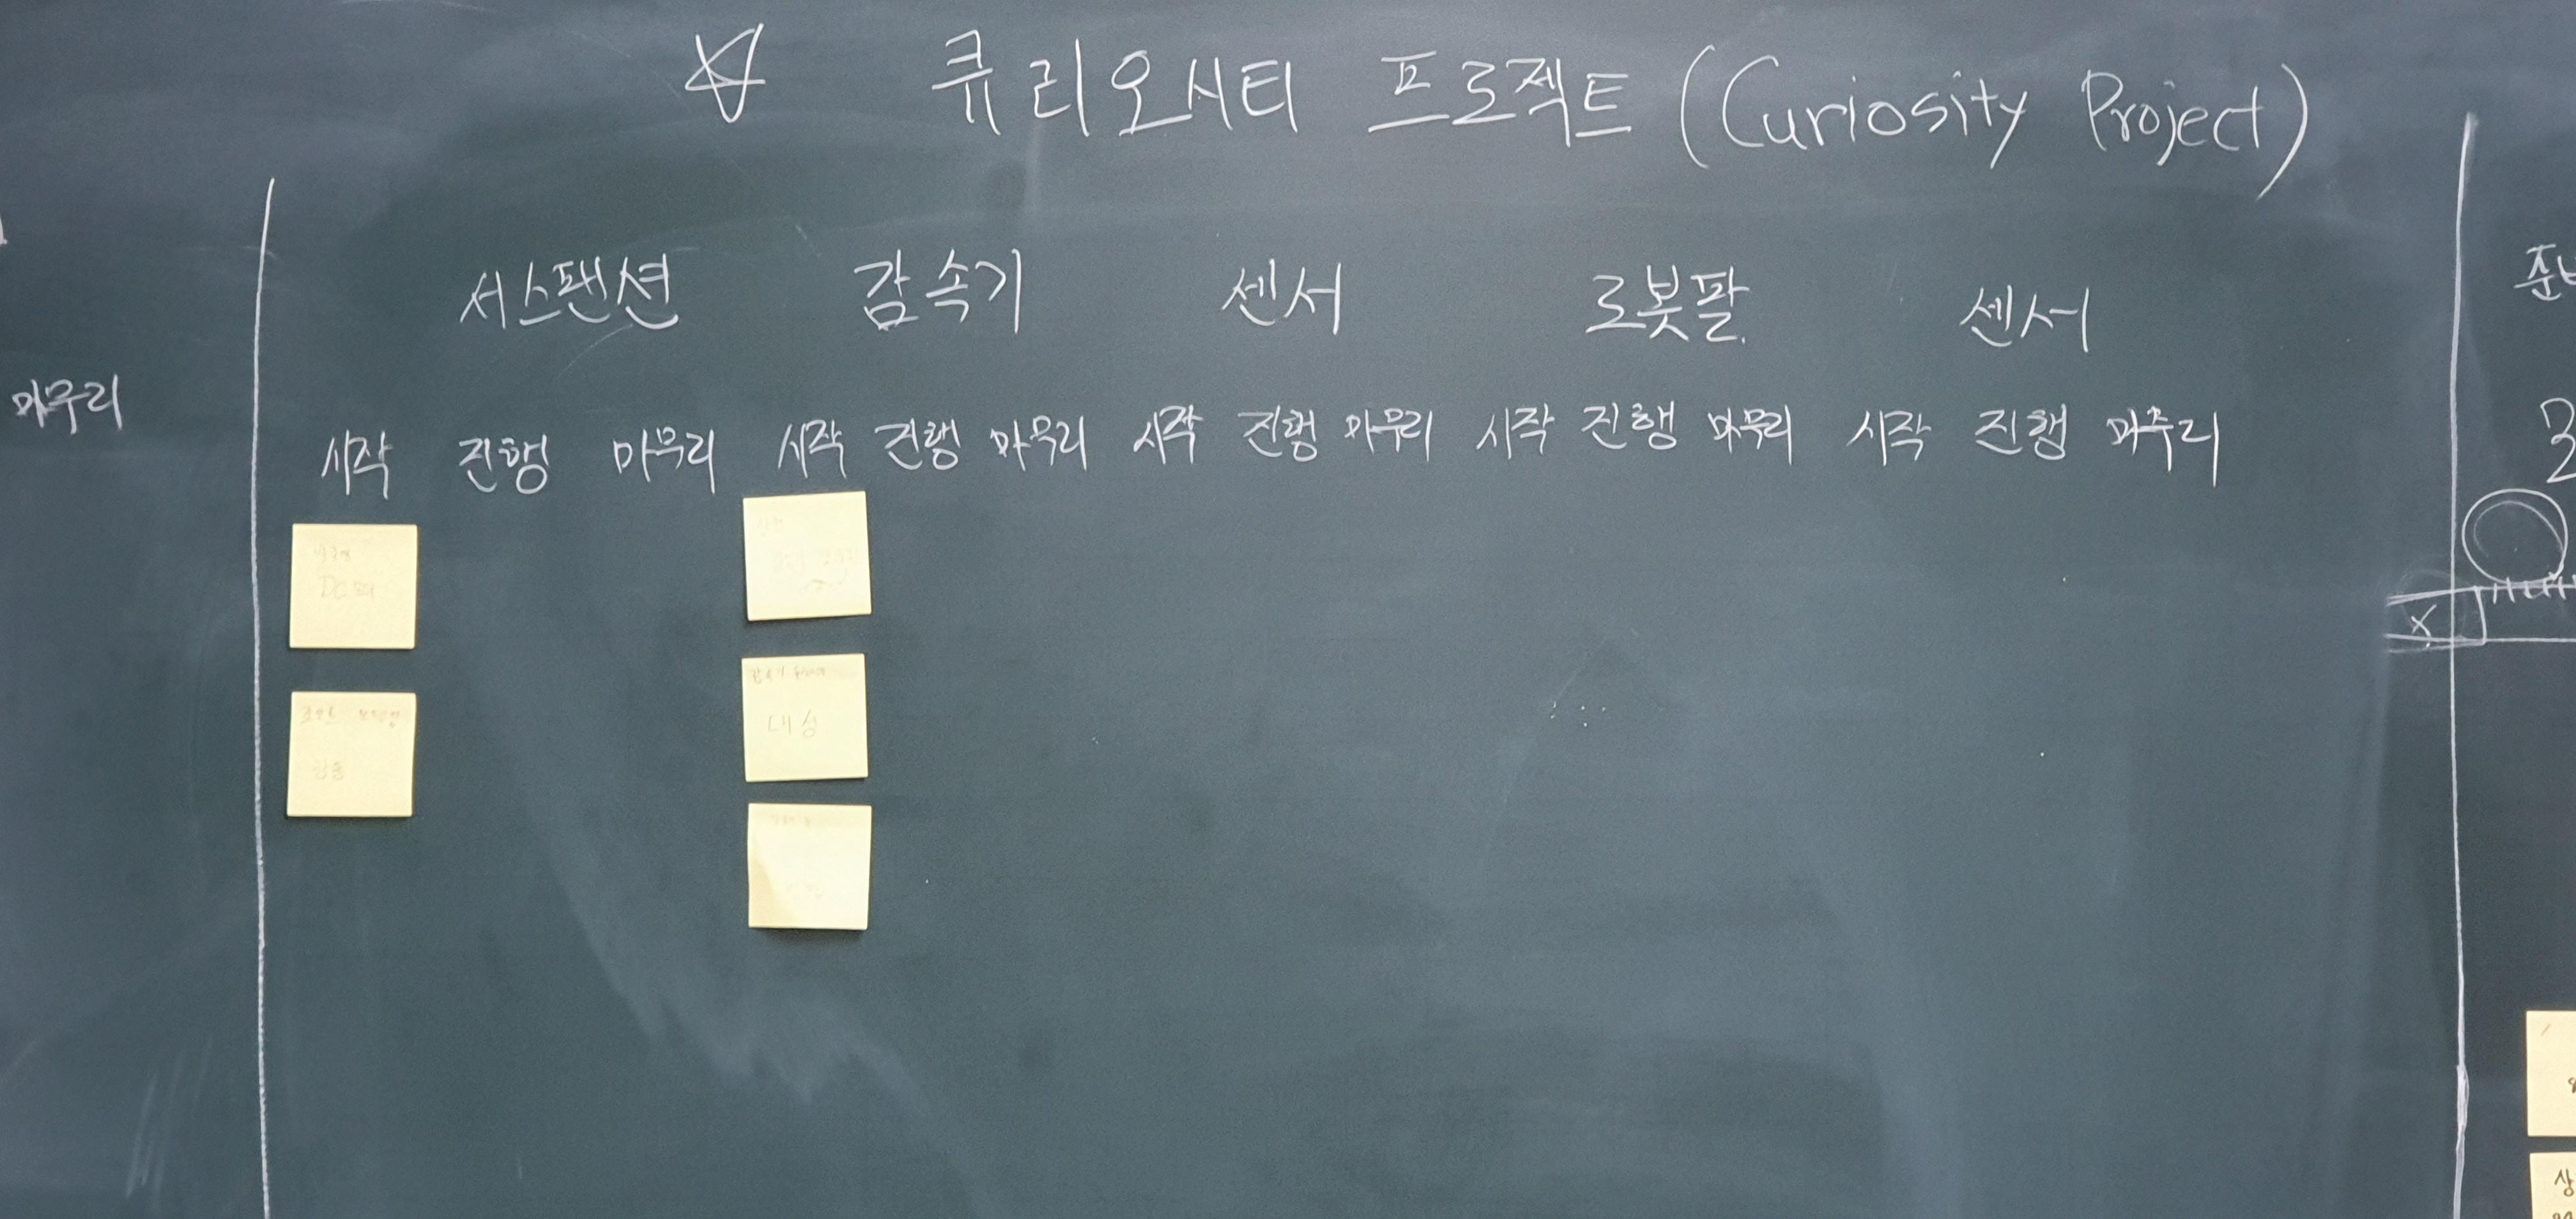 큐리오시티 프로젝트 (Curiosity Project)
서스팬션 감속기 센서 로봇팔 센서
마무리
시작 진행 마무리 시작 진행 마무리 시작 진행 마무리 시작 진행 마무리 시작 진행 마무리
DC모터
대성
X
상